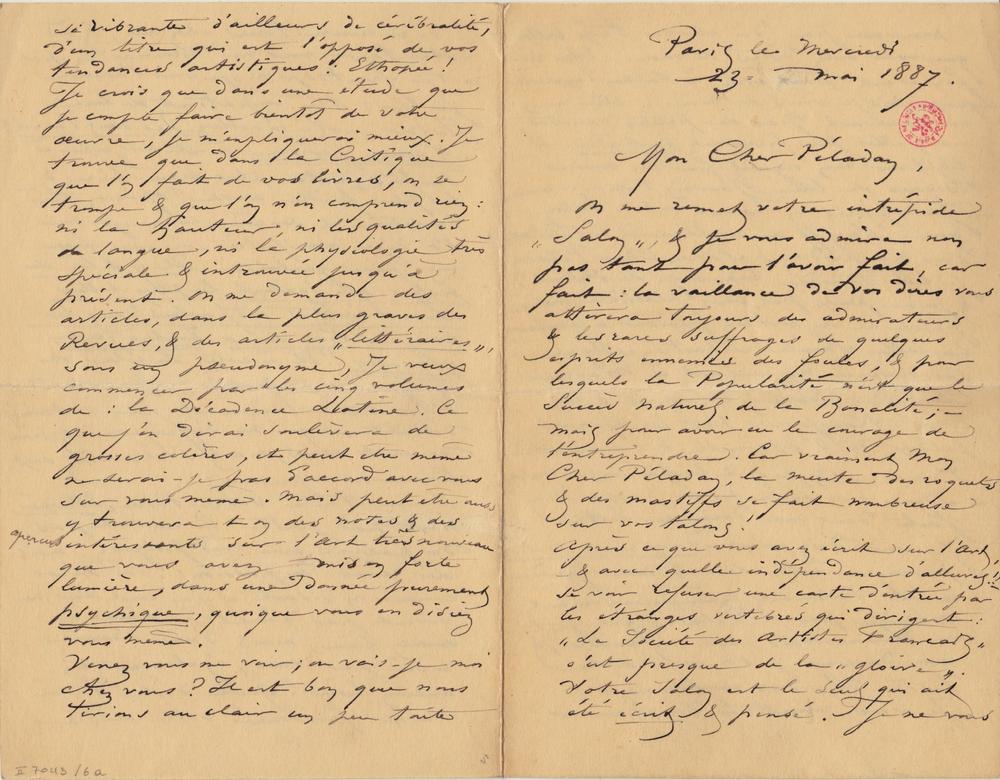 Paris le Mercredi
23 Mai 1887.
Mon Cher Péladan,
On me remet votre intrépide
„Salon„, & je vous admire non
pas tant pour l'avoir fait, car
fait : la vaillance de vos dires vous
attirera toujours des admirateurs
& les rares suffrages de quelques
esprits ennemis des foules, & pour
lesquels la Popularité n'est que le
Succès naturel de la Banalité, –
mais pour avoir eu le courage de
l'entreprendre. Car vraiment Mon
Cher Péladan, la meute des roquets
& des mastifs se fait nombreuse
sur vos talons !
Après ce que vous avez écrit sur l'Art
& avec quelle indépendance d'allures !
se voir refuser une carte d'entrée par
les étranges vertébrés qui dirigent :
„La Société des Artistes Francais„
c'est presque de la „gloire„.
Votre Salon est le seul qui ait
été écrit & pensé. Je ne vous
si vibrante d'ailleurs de cérébralité,
d'un titre qui est l'opposé de vos
tendances artistiques. Ethopée !
Je crois que dans une étude que
je compte faire bientôt de votre
œuvre, je m'expliquerai mieux. Je
trouve que dans la Critique
que l'on fait de vos livres, on se
trompe & que l'on n'en comprend rien :
ni la hauteur, ni les qualités
de langue, ni la physiologie très
spéciale & introuvée jusqu'à
présent. On me demande des
articles, dans la plus graves des
Revues, & des articles „littéraires„,
sous un pseudonyme, Je veux
commencer par les cinq volumes
de : la Décadence Latine. Ce
que j'en dirai soulèvera de
grosses colères, et peut être même
ne serai-je pas d'accord avec vous
sur vous même. Mais peut être aussi
y trouvera t on des notes & des
aperçus intéressants sur l'Art très nouveau
que vous avez mis en forte
lumière, dans une donnée purement
psychique, quoique vous en disiez
vous même.
Venez vous me voir ; ou vais-je moi
chez vous ? Il est bon que nous
tirions au clair un peu toute
II 7043 / 6a